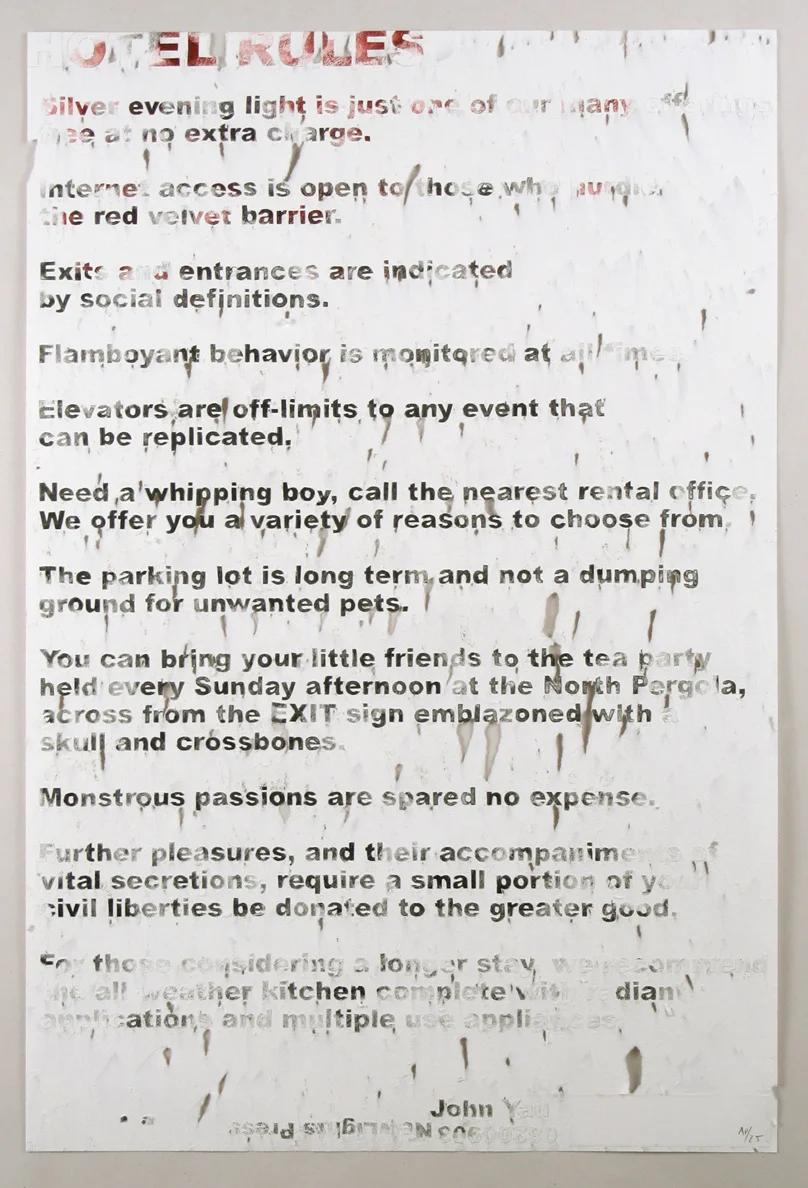 HOTEL RULES
Silver evening light is just one of our many offerings
free at no extra charge.
Internet access is open to those who hurdle
the red velvet barrier.
Exits and entrances are indicated
by social definitions.
Flamboyant behavior is monitored at all times.
Elevators are off-limits to any event that
can be replicated.
Need a whipping boy, call the nearest rental office.
We offer you a variety of reasons to choose from.
The parking lot is long term and not a dumping
ground for unwanted pets.
You can bring your little friends to the tea party
held every Sunday afternoon at the North Pergola,
across from the EXIT sign emblazoned with a
skull and crossbones.
Monstrous passions are spared no expense.
Further pleasures, and their accompaniments of
vital secretions, require a small portion of your
civil liberties be donated to the greater good.
For those considering a longer stay, we recommend
the all weather kitchen complete with
applications and multiple use appliances.
John Yau
NewLights Press